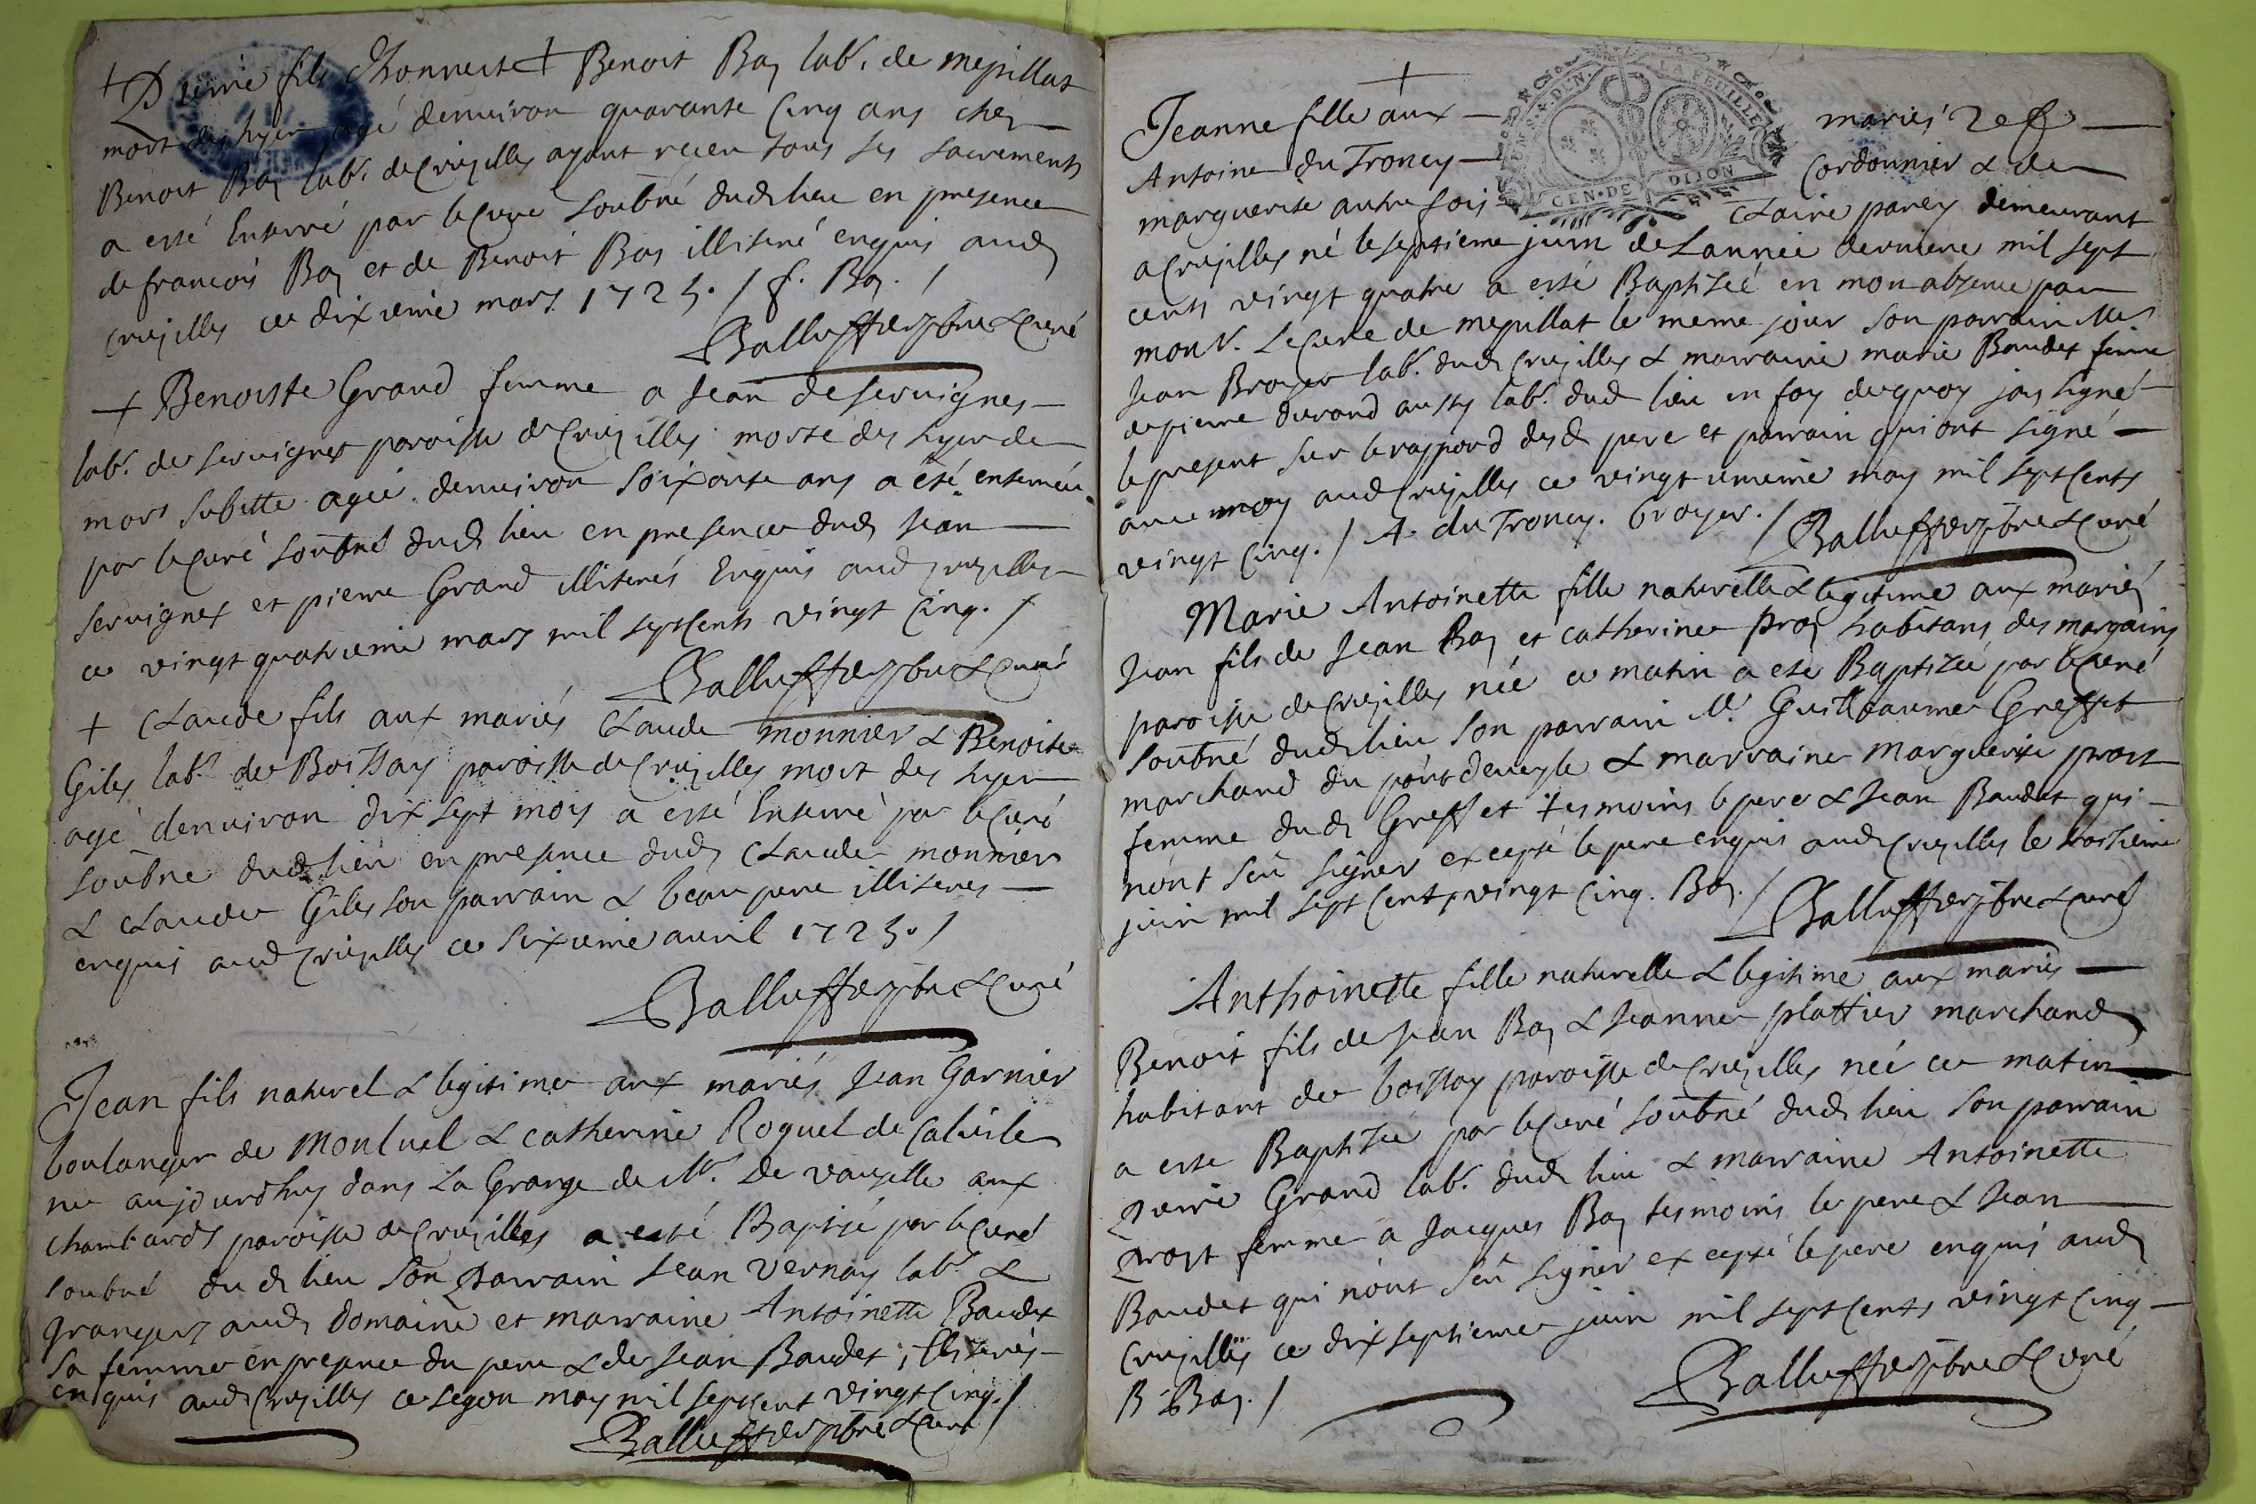 + Pierre fils d'honneste + Benoit Bay lab.r de mepillat
mort des hyer agé denuiron quarante Cinq ans chez
Benoit Bay lab.r de Crusilles ayant receu tous ses sacrements
a esté Enterré par le Curé soubné dud lieu en presence
de francois Bay et de Benoit Bay illiteré enquis aud
Crusilles ce dixieme mars 1725. / f. Bay. /
Balluffier pbre & Curé
+ Benoiste Grand femme a Jean de seruignes
lab.r de seruignes paroisse de Crusilles morte des hyer de
mort subitte agée denuiron soixante ans a été enterrée
par le Curé soubné dud lieu en presence dud Jean
seruignes et pierre Grand illiterés Enquis aud Crusilles
ce vingt quatrieme mars mil sept Cents vingt Cinq. /
Balluffier pbre & Curé
+ Claude fils aux mariés Claude monnier & Benoite
Giles lab.r de Boissay paroisse de Crusilles mort des hyer
agé denuiron dix sept mois a esté Enterré par le Curé
soubné dud lieu en presence dud Claude monnier
& Claude Giles son parrain & beau pere illiterés
enquis aud Crusilles ce sixieme auril 1725. /
Balluffier pbre & Curé
Jean fils naturel & legitime aux mariés Jean Garnier
boulanger de Monluel & catherine Roquel de Caluile
né aujourdhuy dans La Grange de Mr. De vauzelle aux
Chambards paroisse de Crusilles a esté Baptisé par le Curé
soubné du d lieu son parrain Jean Vernay lab.r &
Granger aud Domaine et marraine Antoinette Baudet
sa femme en presence du pere & de Jean Baudet illiterés
enquis aud Crusilles ce segon may mil sept cent vingt Cinq. /
Balluffier pbre & Curé
+
Jeanne fille aux mariés
GEN. DE DIJON
LA FEUILLE
Antoine du Troncy Cordonnier & de
marguerite autrefois Claire parey demeurant
a Crusilles né le septieme juin de Lannée derniere mil sept
cents vingt quatre a esté Baptizée en mon absence par
mons.r Le Curé de mepillat le meme jour son parrain
Jean Broyer lab.r dud Crusilles & marraine marie Baudet femme
de pierre durand aussy lab.r dud lieu en foy dequoy jay signé
le present sur le rapport desd pere et parrain qui ont signé
auec moy aud Crusilles ce vingt unieme may mil sept Cents
vingt Cinq. / A. du Troncy. broyer. / Balluffier pbre & Curé
Marie Antoinette fille naturelle & legitime aux mariés
Jean fils de Jean Bay et catherine proz habitans des margains
paroisse de Crusilles née ce matin a eté Baptizée par le Curé
soubné dud lieu son parrain Mr. Guillaume Greffet
marchand du pont deueyle & marraine Marguerite prost
femme dud Greffet tesmoins le pere & Jean Baudet qui
n'ont sceu signer excepté le pere enquis aud Crusilles le troisieme
juin mil sept Cents vingt Cinq. Bay. / Balluffier pbre & Curé
Anthoinette fille naturelle & legitime aux mariés
Benoit fils de Jean Bay & Jeanne plattier marchand
habitant de boissay paroisse de Crusilles née ce matin
a esté Baptizée par le Curé soubné dud lieu son parrain
pierre Grand lab.r dud lieu & marraine Antoinette
prost femme a Jacques Bay tesmoins le pere & Jean
Baudet qui n'ont sceu signer excepté le pere enquis aud
Crusilles ce dix septieme juin mil sept Cents vingt Cinq
B. Bay. / Balluffier pbre & Curé